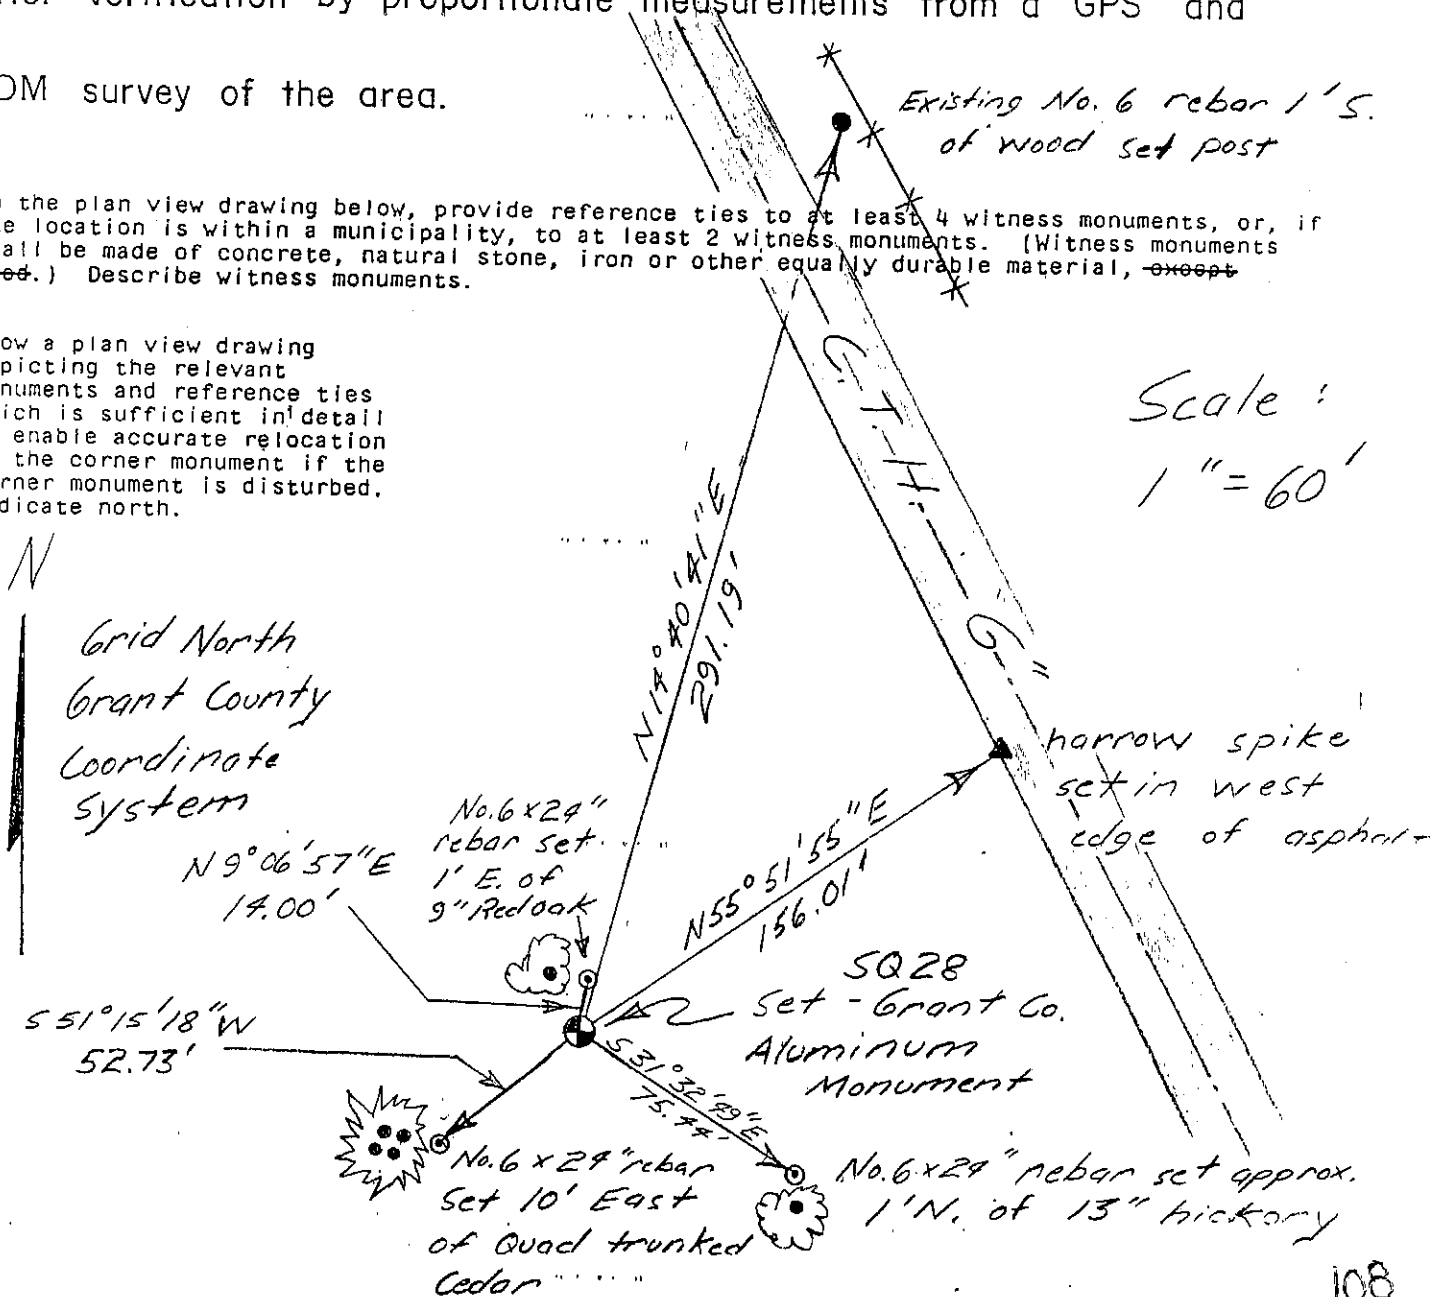 verification by proportionate measurements from a GPS and
DM survey of the area.
Existing No. 6 rebar 1' S.
of wood set post
the plan view drawing below, provide reference ties to at least 4 witness monuments, or, if
e location is within a municipality, to at least 2 witness monuments. (Witness monuments
all be made of concrete, natural stone, iron or other equally durable material, except
ed.) Describe witness monuments.
ow a plan view drawing
picting the relevant
numents and reference ties
ich is sufficient in detail
enable accurate relocation
the corner monument if the
rner monument is disturbed.
dicate north.
Scale :
1" = 60'
C. T. H. "G"
N
Grid North
Grant County
Coordinate
System
N14°40'41"E
291.19'
harrow spike
set in west
edge of asphalt
No.6 x 24"
rebar set
1' E. of
9" Red oak
N 9°06'57"E
14.00'
N55°51'55"E
156.01'
SQ28
Set - Grant Co.
Aluminum
Monument
S 51°15'18"W
52.73'
S31°32'49"E
75.44'
No.6 x 24" rebar
Set 10' East
of Quad trunked
Cedar
No.6 x 24" rebar set approx.
1' N. of 13" hickory
108